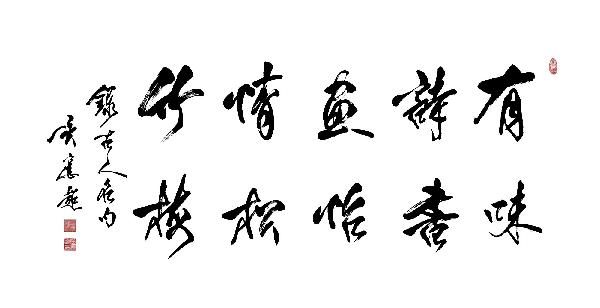 有味
詩書
畫怡
情松
竹梅
錄古人名句
吳